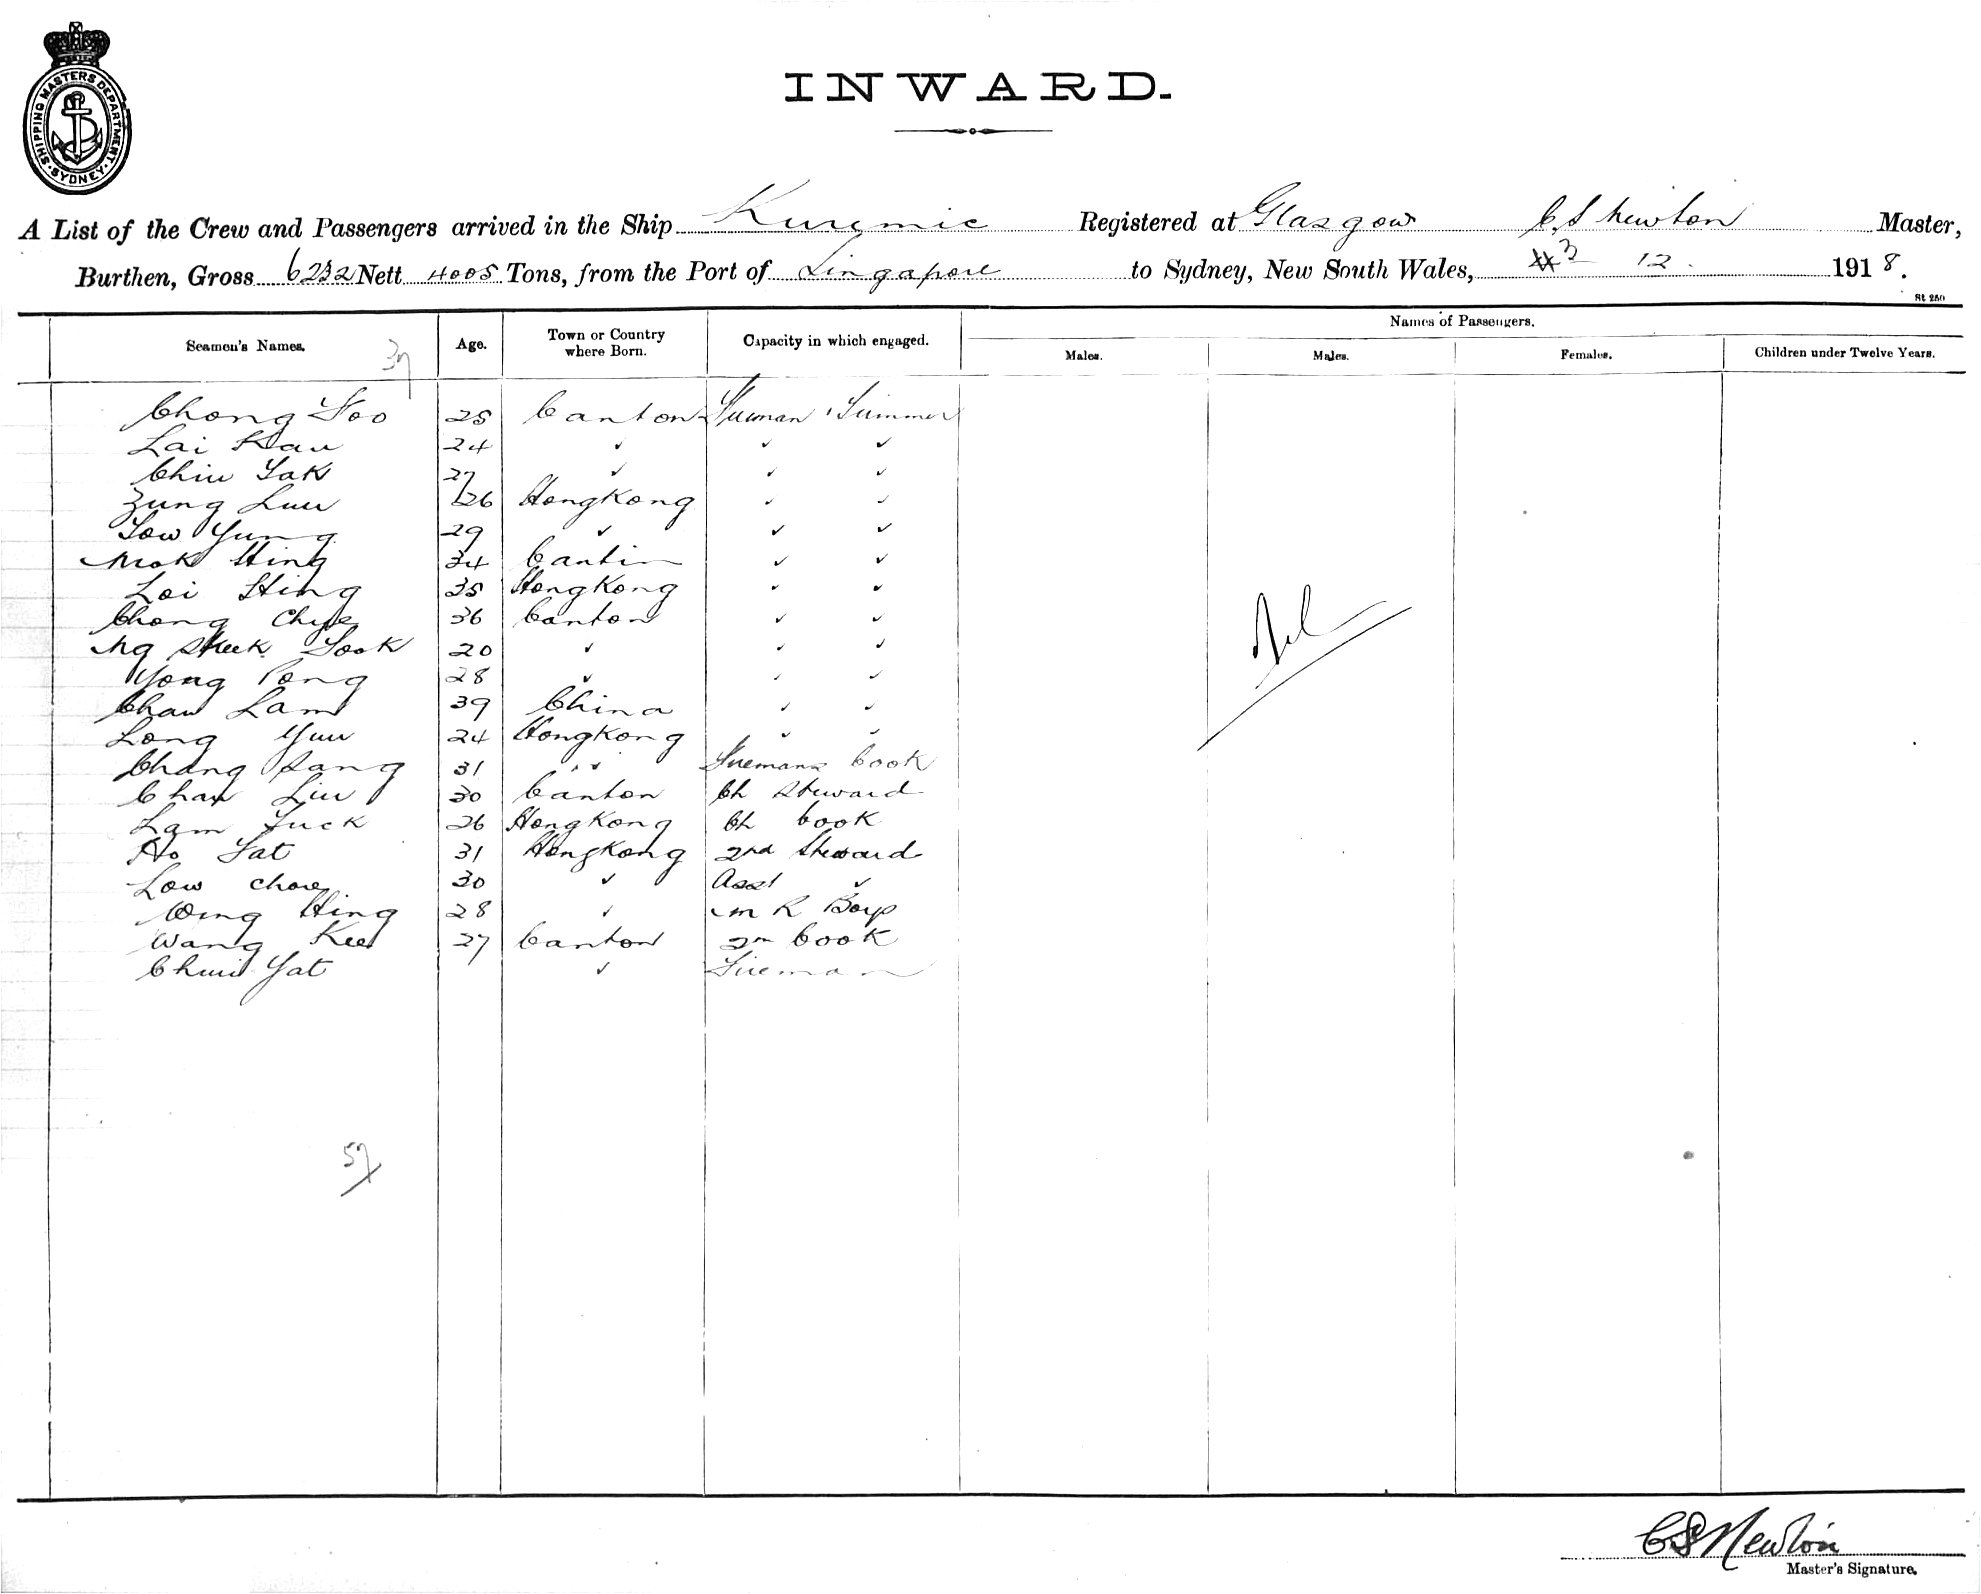 SHIPPING MASTERS DEPARTMENT. SYDNEY.
INWARD.
A List of the Crew and Passengers arrived in the Ship Kurymic Registered at Glasgow C S Newton Master,
Burthen, Gross 6232 Nett 4005 Tons, from the Port of Singapore to Sydney, New South Wales, 3 12. 1918.
St 250
Seamen's Names. 37 Age. Town or Country where Born. Capacity in which engaged. Names of Passengers.
Males. Males. Females. Children under Twelve Years.
Chong Soo 25 Canton Fireman & Trimmer
Lai Kau 24 " " "
Chiu Yak 27 " " "
Zung Luu 26 HongKong " "
Sow Yung 29 " " "
Mok Hing 34 Canton " "
Loi Hing 35 HongKong " "
Chong Chye 36 Canton " "
Ng Sheek Sook 20 " " "
Yong Pong 28 " " "
Chau Lam 39 China " "
Long Yuu 24 HongKong " "
Chang Sang 31 " Firemans Cook
Chan Liu 30 Canton Ch Steward
Lam Fuck 26 HongKong Ch Cook
Ho Fat 31 HongKong 2nd Steward
Low Chow 30 " Asst "
Wing Hing 28 " M R Boys
Wang Kee 27 Canton 2nd Cook
Chui Yat " Fireman
Nil
57
C S Newton
Master's Signature.